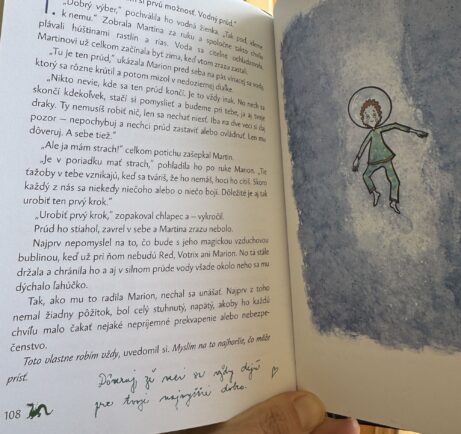 si prvú možnosť. Vodný prúd."
„Dobrý výber," pochválila ho vodná žienka. „Tak poď, ideme
k nemu." Zobrala Martina za ruku a spoločne takto chvíľu
plávali húštinami rastlín a rias. Voda sa citeľne ochladzovala.
Martinovi už celkom začínala byť zima, keď vtom zrazu zastali.
„Tu je ten prúd," ukázala Marion pred seba na pás víriacej sa vody,
ktorý sa rôzne krútil a potom mizol v nedozierne diaľke.
„Nikto nevie, kde sa ten prúd končí. Je to vždy inak. No nech sa
skončí kdekoľvek, stačí si pomyslieť a budeme pri tebe, ja aj tvoje
draky. Ty nemusíš robiť nič, len sa nechať niesť. Iba na dve veci si daj
pozor – nepochybuj a nechci prúd zastaviť alebo ovládnuť. Len mu
dôveruj. A sebe tiež."
„Ale ja mám strach!" celkom potichu zašepkal Martin.
„Je v poriadku mať strach," pohladila ho po ruke Marion. „Tie
ťažoby v tebe vznikajú, keď sa tváriš, že ho nemáš, hoci ho cítiš. Skoro
každý z nás sa niekedy niečoho alebo o niečo bojí. Dôležité je aj tak
urobiť ten prvý krok."
„Urobiť prvý krok," zopakoval chlapec a – vykročil.
Prúd ho stiahol, zavrel v sebe a Martina zrazu nebolo.
Najprv nepomyslel na to, čo bude s jeho magickou vzduchovou
bublinou, keď už pri ňom nebudú Red, Votrix ani Marion. No tá stále
držala a chránila ho a aj v silnom prúde vody všade okolo neho sa mu
dýchalo ľahúčko.
Tak, ako mu to radila Marion, nechal sa unášať. Najprv z toho
nemal žiadny pôžitok, bol celý stuhnutý, napätý, akoby ho každú
chvíľu malo čakať nejaké nepríjemné prekvapenie alebo nebezpe-
čenstvo.
Toto vlastne robím vždy, uvedomil si. Myslím na to najhoršie, čo môže
prísť.
Dôveruj že veci sa vždy dejú
pre tvoje najvyššie dobro. ♡
108